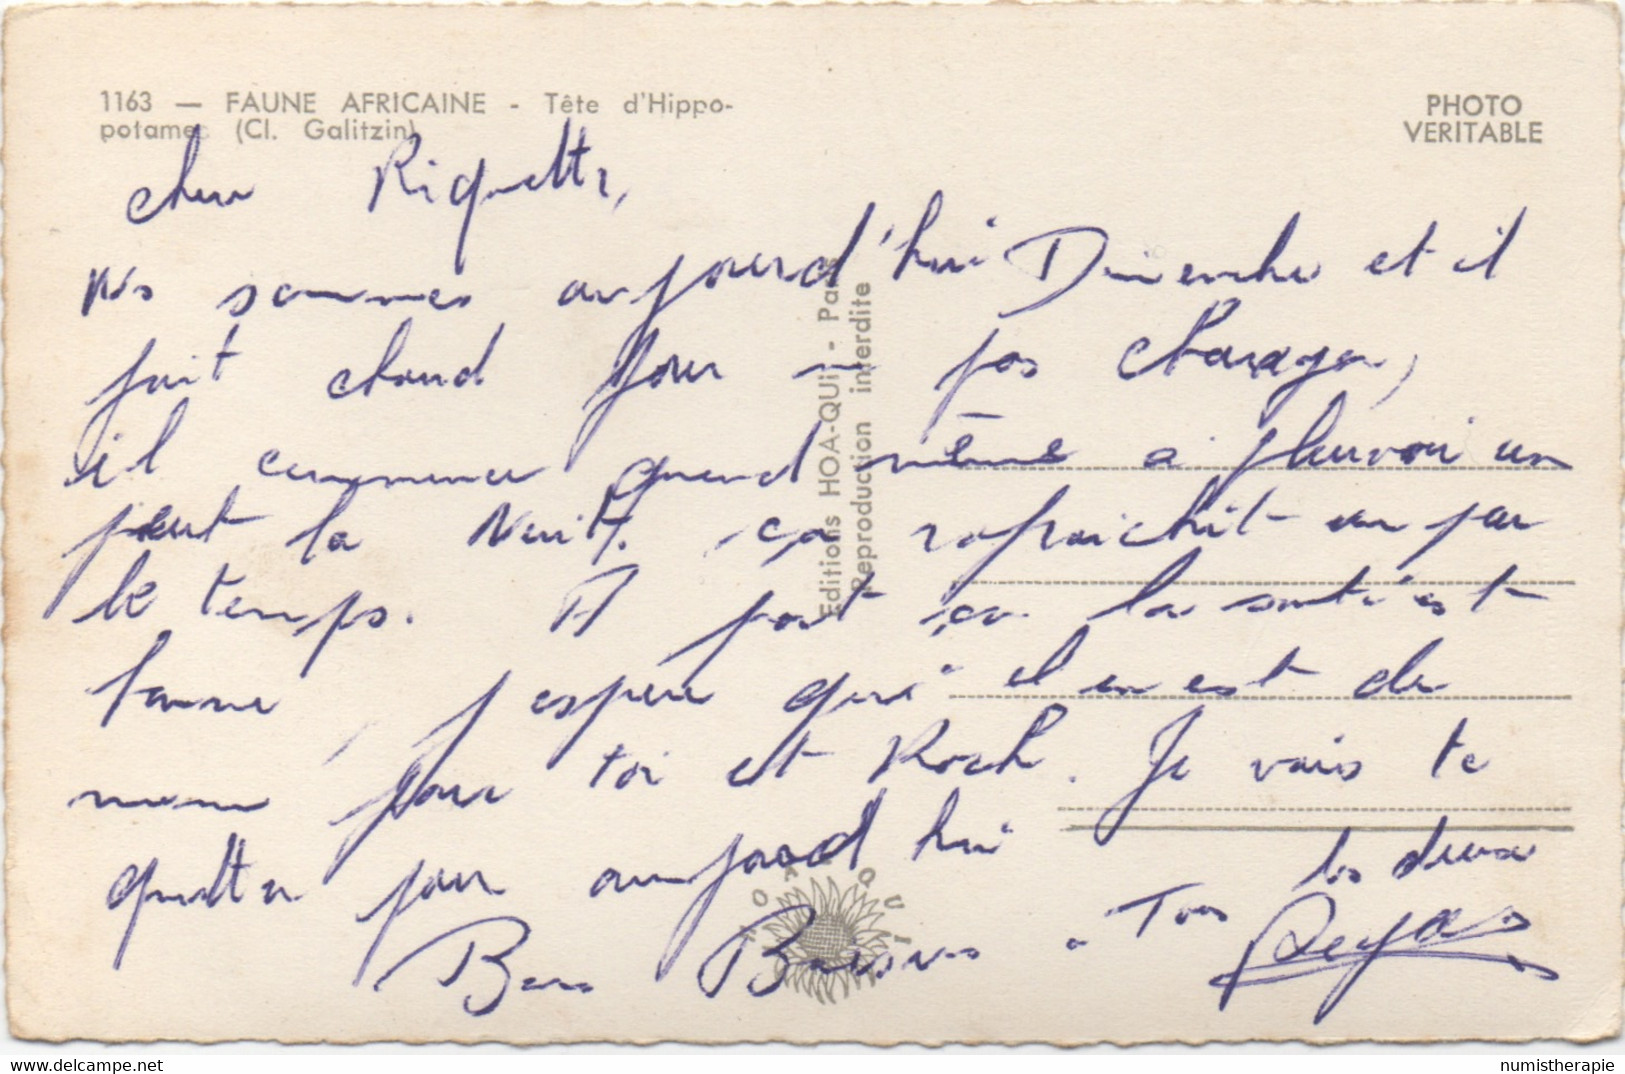 1163 — FAUNE AFRICAINE - Tête d'Hippo-
potames (Cl. Galitzin)
PHOTO
VERITABLE
Editions HOA-QUI - Paris
Reproduction interdite
HOA QUI
cher Riquette,
Ns sommes aujourd'hui Dimenche et il
fait chaud pour ne pas changer,
il commence quand même a pleuvoir un
peut la Nuit, ça rafraichit un peu
le temps. A part ça la santé est
bonne, j'espere qu'il en est de
meme pour toi et Roch. Je vais te
quitter pour aujourd hui
Bons Baisers a Tous les deux